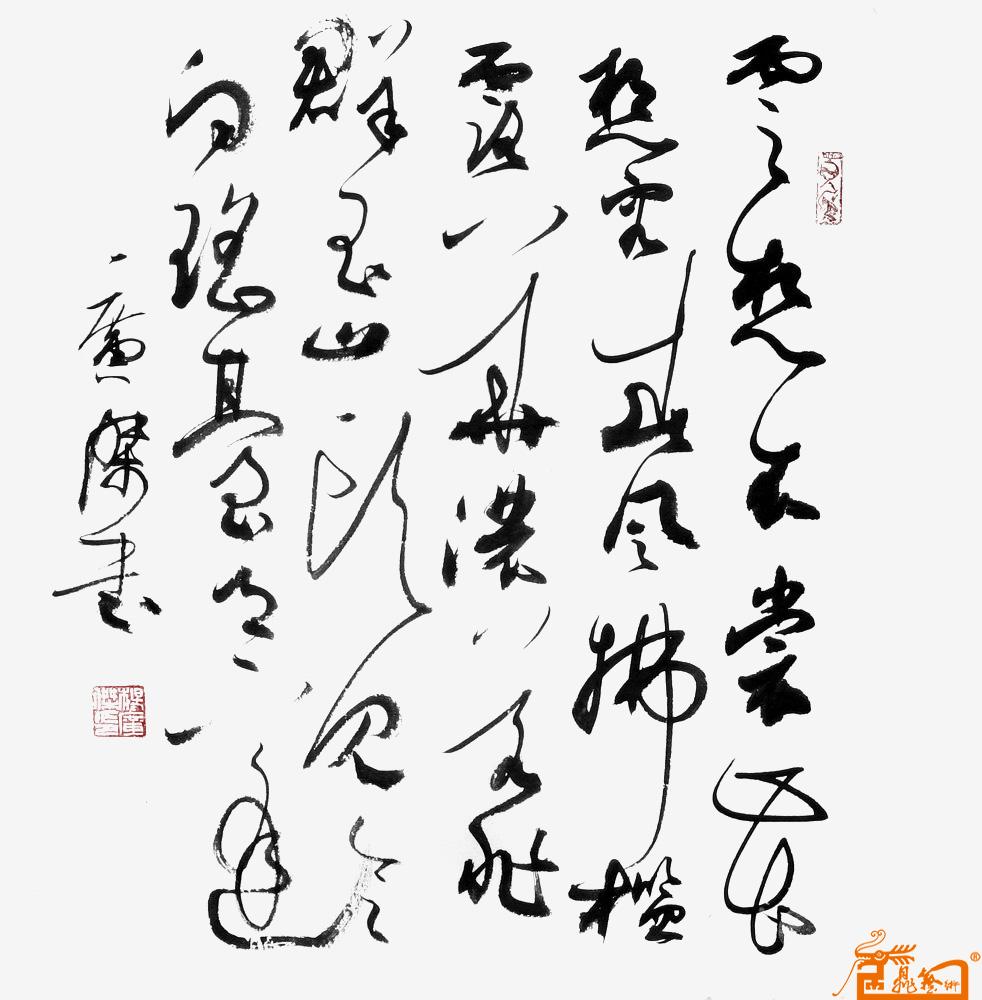 雲想衣裳花
想容春风拂檻
露華濃若非
群玉山頭見会
向瑶臺月下逢
廣傑書